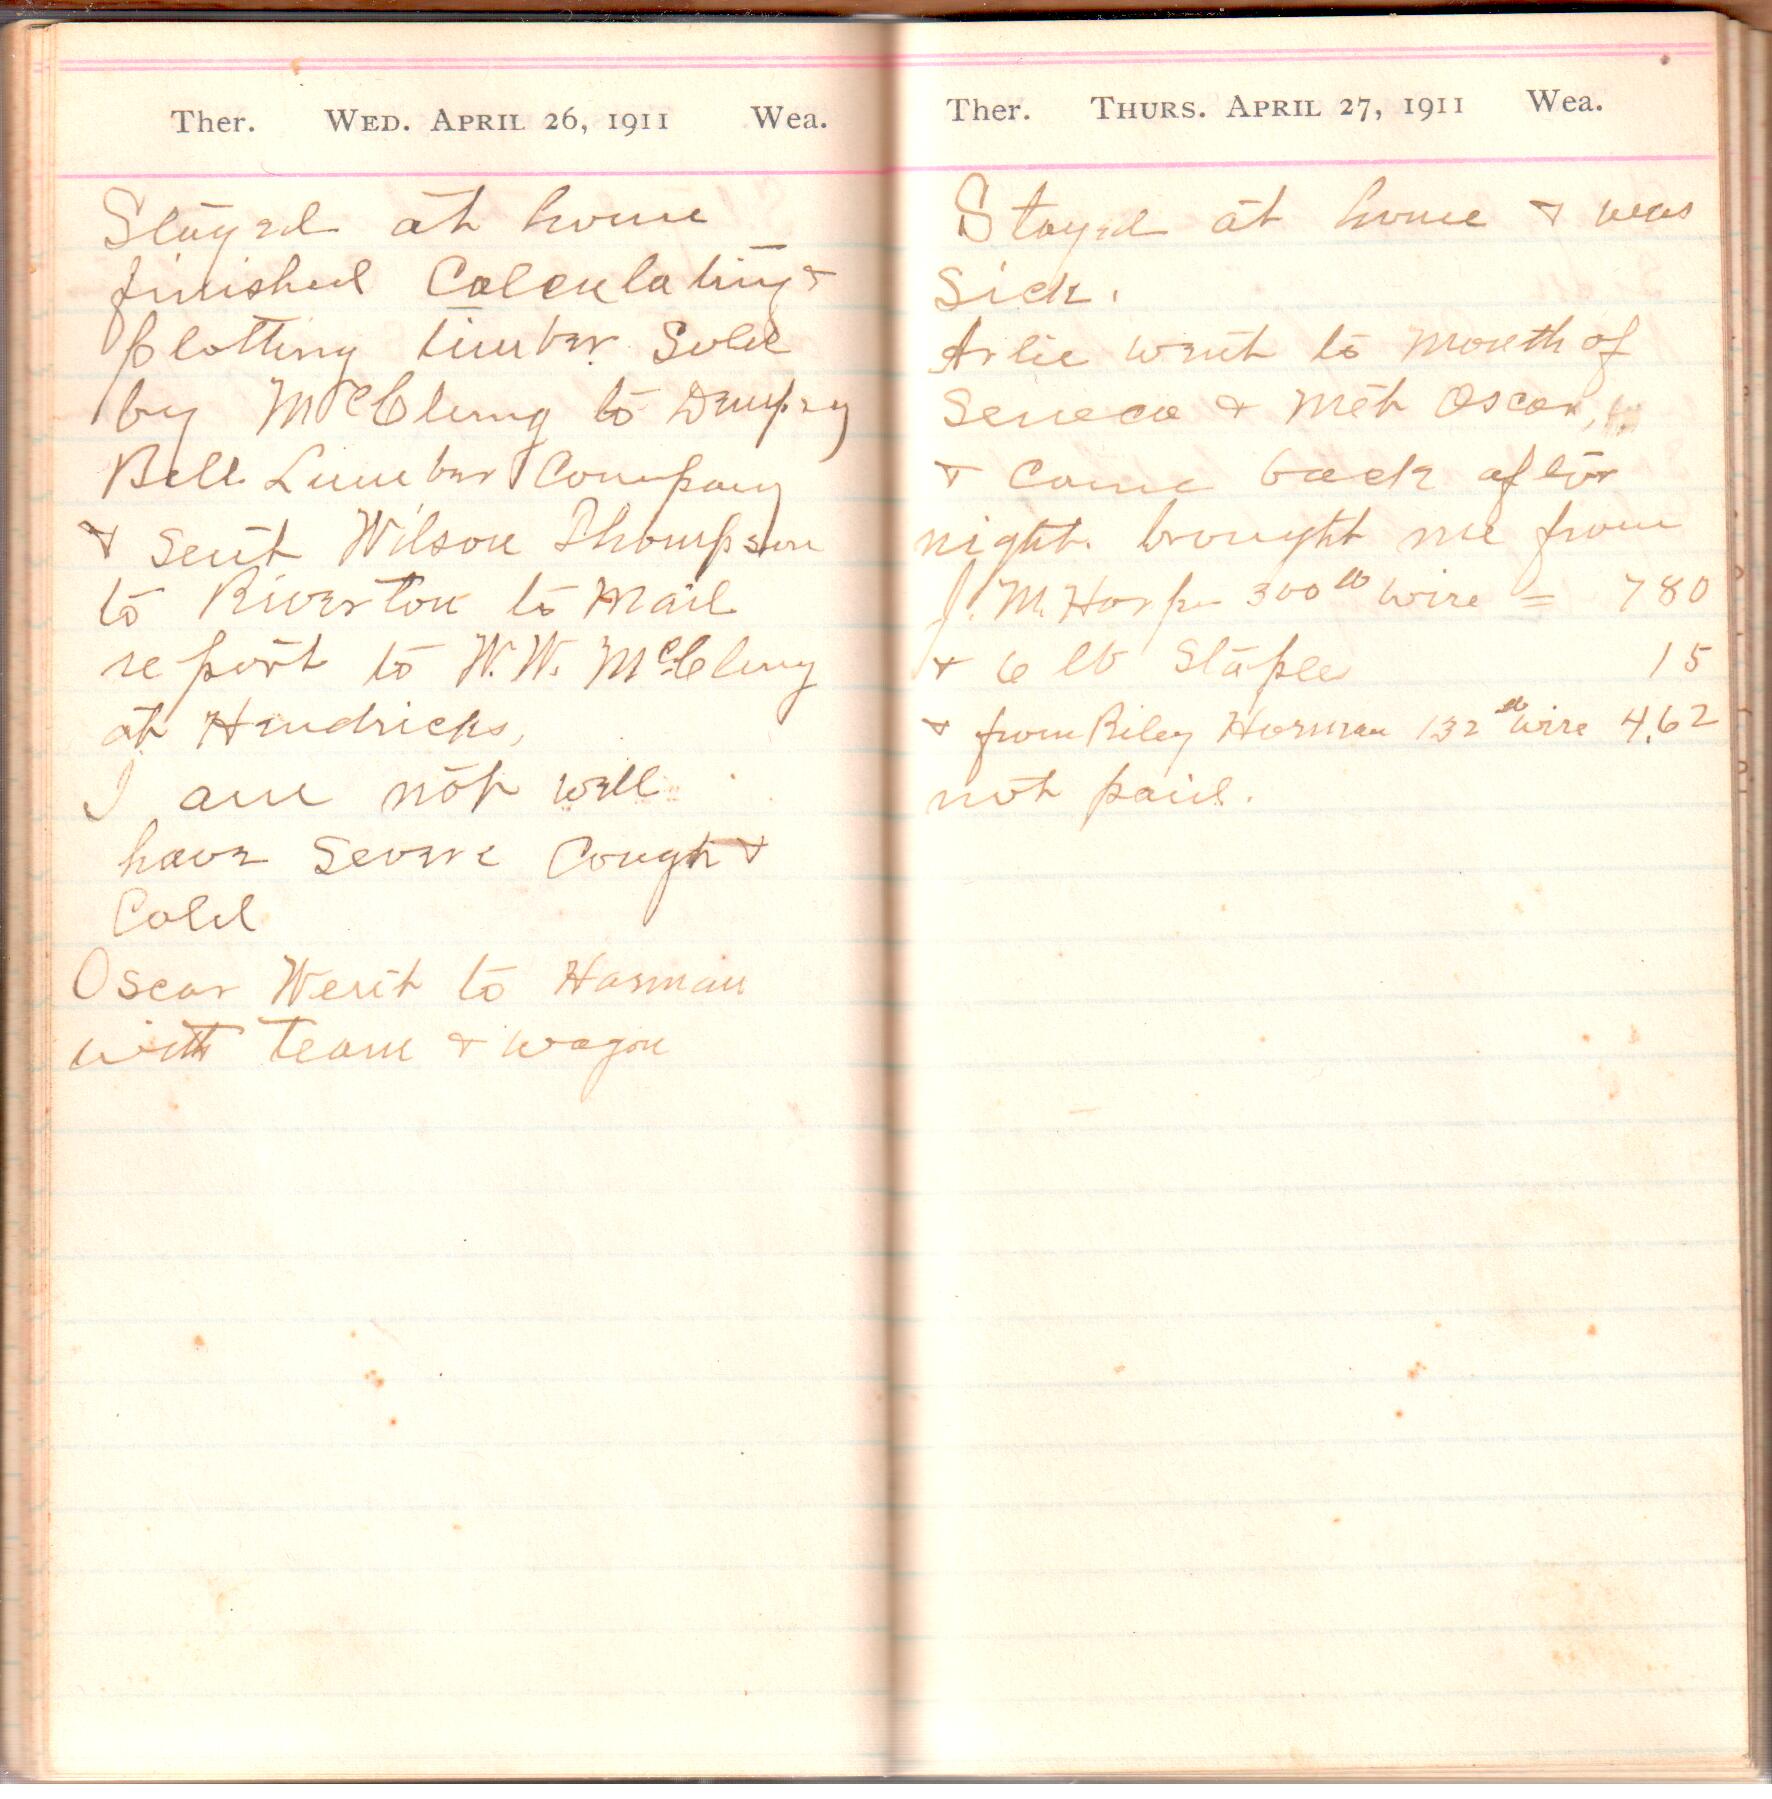 Ther. WED. APRIL 26, 1911 Wea.
Stayed at home
finished Calculating &
plotting timber Sold
by McClung to Dempsey
Bell Lumber Company
& Sent Wilson Thompson
to Riverton to Mail
report to W. W. McClung
at Hendricks,
I am not well
have Severe Cough &
Cold
Oscar Went to Harman
with team & wagon
Ther. THURS. APRIL 27, 1911 Wea.
Stayed at home & was
Sick.
Arlie went to mouth of
Seneca & met Oscar,
& Came back after
night. brought me from
J. M. Harper 300 lb wire = 780
& 6 lb Staples 15
& from Riley Harman 132 lb wire 4.62
not paid.